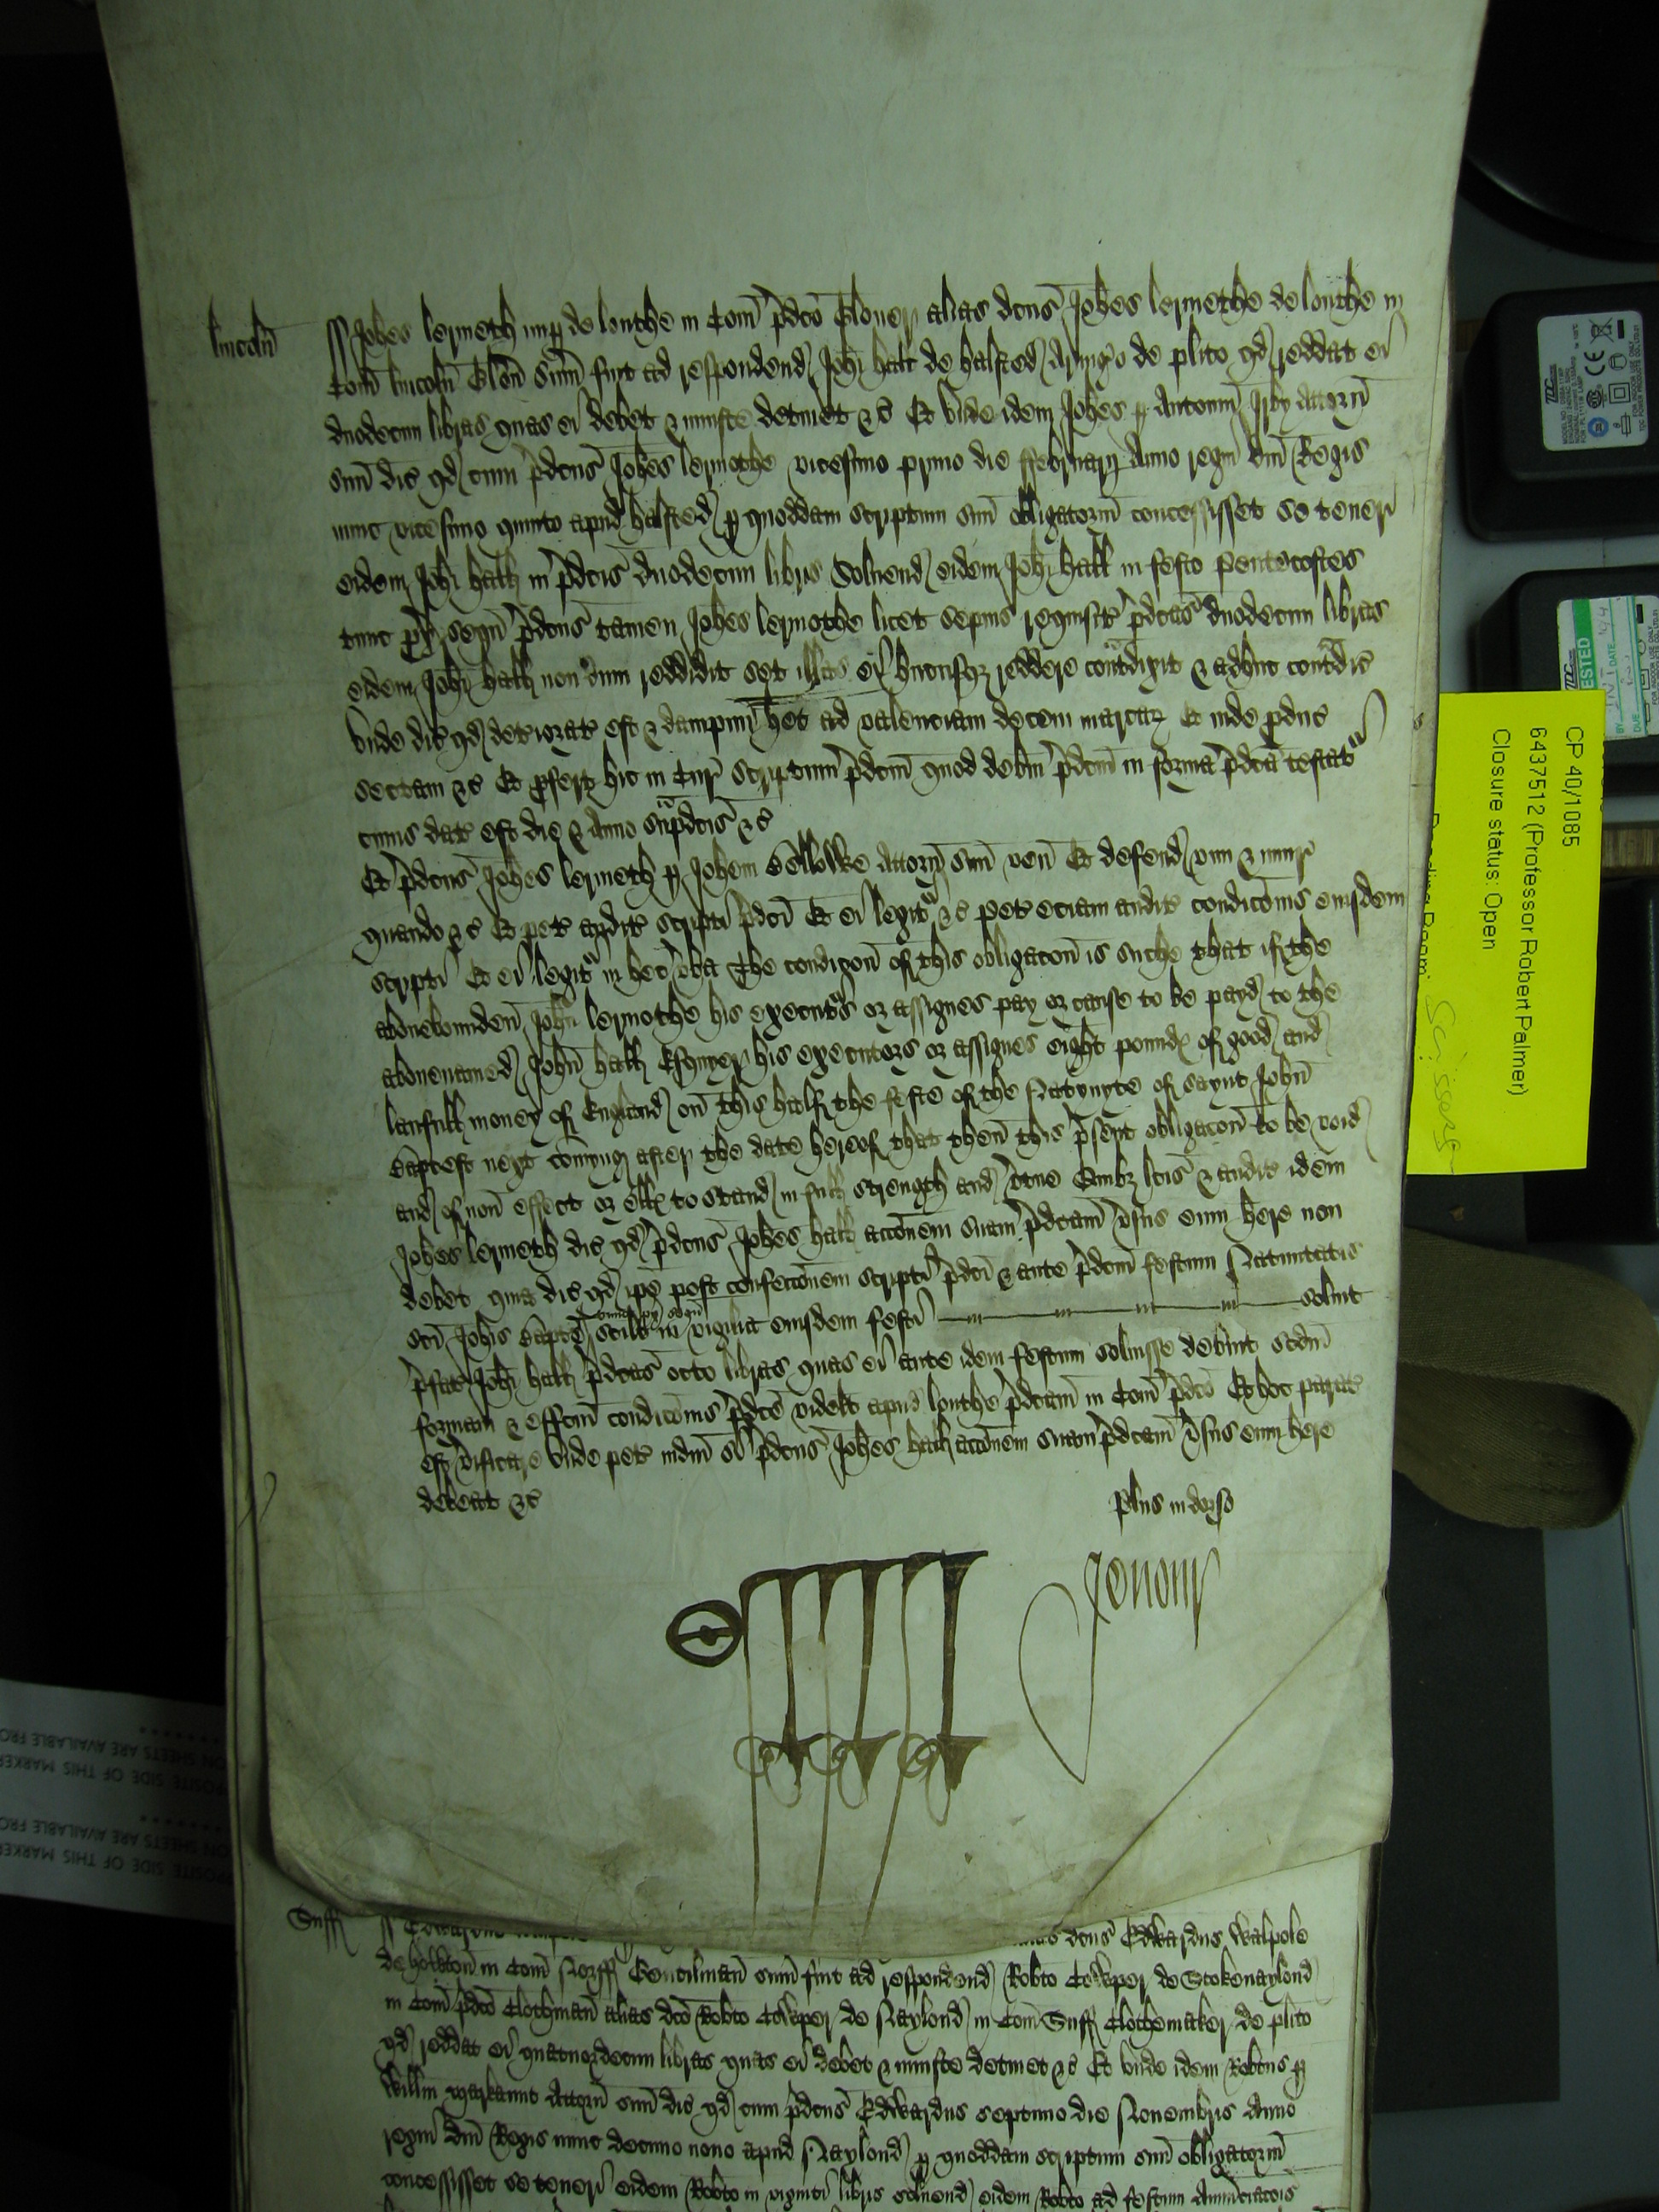 lincoln
Johes lermeth nup de louthe in Com pdco Glover alias dcus Johes lermethe de louthe in
Com lincoln Glov sum fuit ad respondend Johi hall de halsted Armigo de plito qd reddat ei
duodecim libras quas ei debet & iniuste detinet &c Et unde idem Johes p Antoniu Irby Attorn
suu dic qd cum pdcus Johes lermethe vicesimo primo die ffebruarij Anno regni dni Regis
nunc vicesimo quinto apud halsted p quoddam scriptum suu obligatoriu concessisset se teneri
eidem Johi hall in pdcis duodecim libris Solvend eidem Johi hall in festo Pentecostes
tunc px sequ pdcus tamen Johes lermethe licet sepius requisit pdcas duodecim libras
eidem Johi hall nondum reddidit set illas ei hucusqz reddere contdixit & adhuc contdic
Unde dic qd deteriorat est & dampnu het ad valenciam decem marcaz Et inde pduc
sectam &c Et pfert hic in Cur scriptum pdcm quod debitu pdcm in forma pdca testat
cuius dat est die & Anno supdcis &c
Et pdcus Johes lermeth p Johem Attorn suu ven Et defend vim & iniur
quando &c Et pet audit scripti pdci Et ei legit &c pet eciam audit condicois eiusdem
scripti Et ei legit in hec vba The condicon of this obligacon is suche that if the
abovebounden John lermethe his executors or assignes pay or cause to be payd to the
abovenamed John hall Esquyer his executors or assignes eight pounds of good and
laufull money of England on this half the feste of the Natyvyte of saynt John
Baptest next comyng after the date hereof that then this psent obligacon to be void
and of non effect or ells to stand in full strength and vtue Quibz lcis & audit idem
Johes lermeth dic qd pdcus Johes hall accoem suam pdcam vsus eum here non
debet quia dic qd ipe post confeccoem scripti pdci & ante pdcm festum Nativitatis
sci Johis Bapte scilt in vigilia eiusdem festi solvit
pfat Johi hall pdcas octo libras quas ei ante idem festum solvisse debuit scdm
formam & effcm condicois pdce videlt apud louthe pdcam in Com pdco Et hoc parat
est vificare Unde pet iudm si pdcus Johes hall accoem suam pdcam vsus eum here
debeat &c
plus in dorso
Jenour
Suff
dcus Edwardus Walpole
in Com Norff Gentilman sum fuit ad respondend Robto Cowper de Stokenaylond
in Com pdco Clothman alias dco Robto Cowper de Naylond in Com Suff Clothemaker de plito
qd reddat ei quatuordecim libras quas ei debet & iniuste detinet &c Et unde idem Robtus p
Willm Markaunt Attorn suu dic qd cum pdcus Edwardus septimo die Novembris Anno
regni dni Regis nunc decimo nono apud Naylond p quoddam scriptum suu obligatoriu
concessisset se teneri eidem Robto in viginti libris solvend eidem Robto ad festum Annuciacois
CP 40/1085
6437512 (Professor Robert Palmer)
Closure status: Open
Scissors